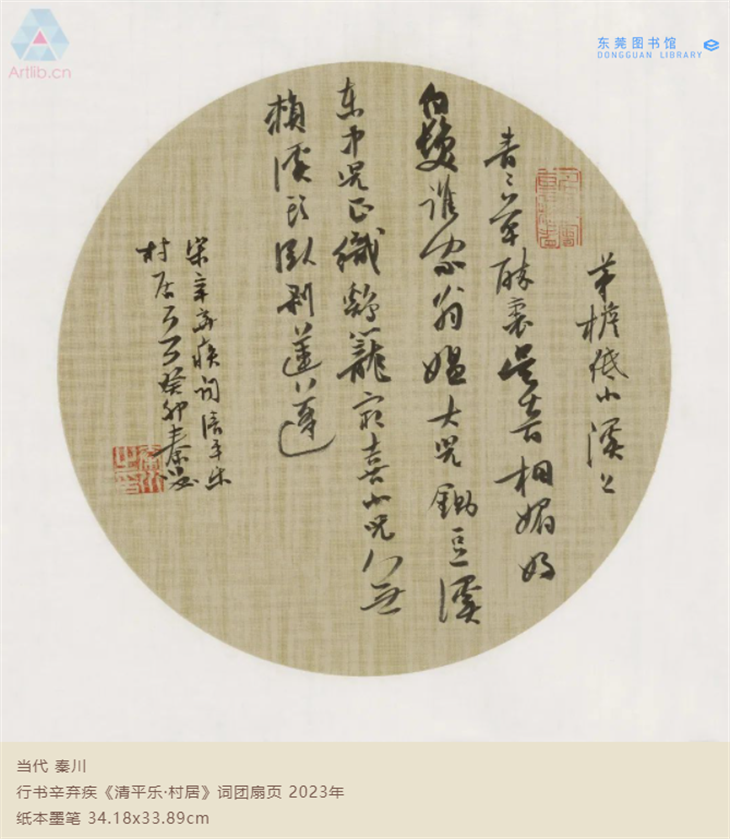 Artlib.cn
东莞图书馆
DONGGUAN LIBRARY
茅檐低小溪上
青々草醉裏吴音相媚好
白髮誰家翁媪大兒鋤豆溪
东中兒正織鷄籠最喜小兒亡無
賴溪头臥剥蓮蓬
宋辛弃疾词清平乐
村居癸卯秦川
当代 秦川
行书辛弃疾《清平乐·村居》词团扇页 2023年
纸本墨笔 34.18x33.89cm